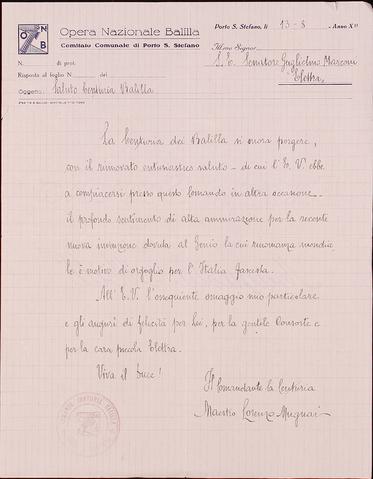 O N B
Opera Nazionale Balilla
Comitato Comunale di Porto S. Stefano
Porto S. Stefano, li 13-8 Anno X°
Illmo Signor
N. di prot.
S. E. Senatore Guglielmo Marconi
Risposta al foglio N. del
Elettra
Oggetto: Saluto Centuria Balilla
La Centuria dei Balilla si onora porgere,
con il rinnovato entusiastico saluto - di cui l'E. V. ebbe
a compiacersi presso questo Comando in altra occasione -
il profondo sentimento di alta ammirazione per la recente
nuova invenzione dovuta al Genio la cui risonanza mondiale
le è motivo di orgoglio per l'Italia fascista.
All'E. V. l'ossequiente omaggio mio particolare
e gli auguri di felicità per Lei, per la gentile Consorte e
per la cara piccola Elettra.
Viva il Duce!
Il Comandante la Centuria
Maestro Lorenzo Mugnai